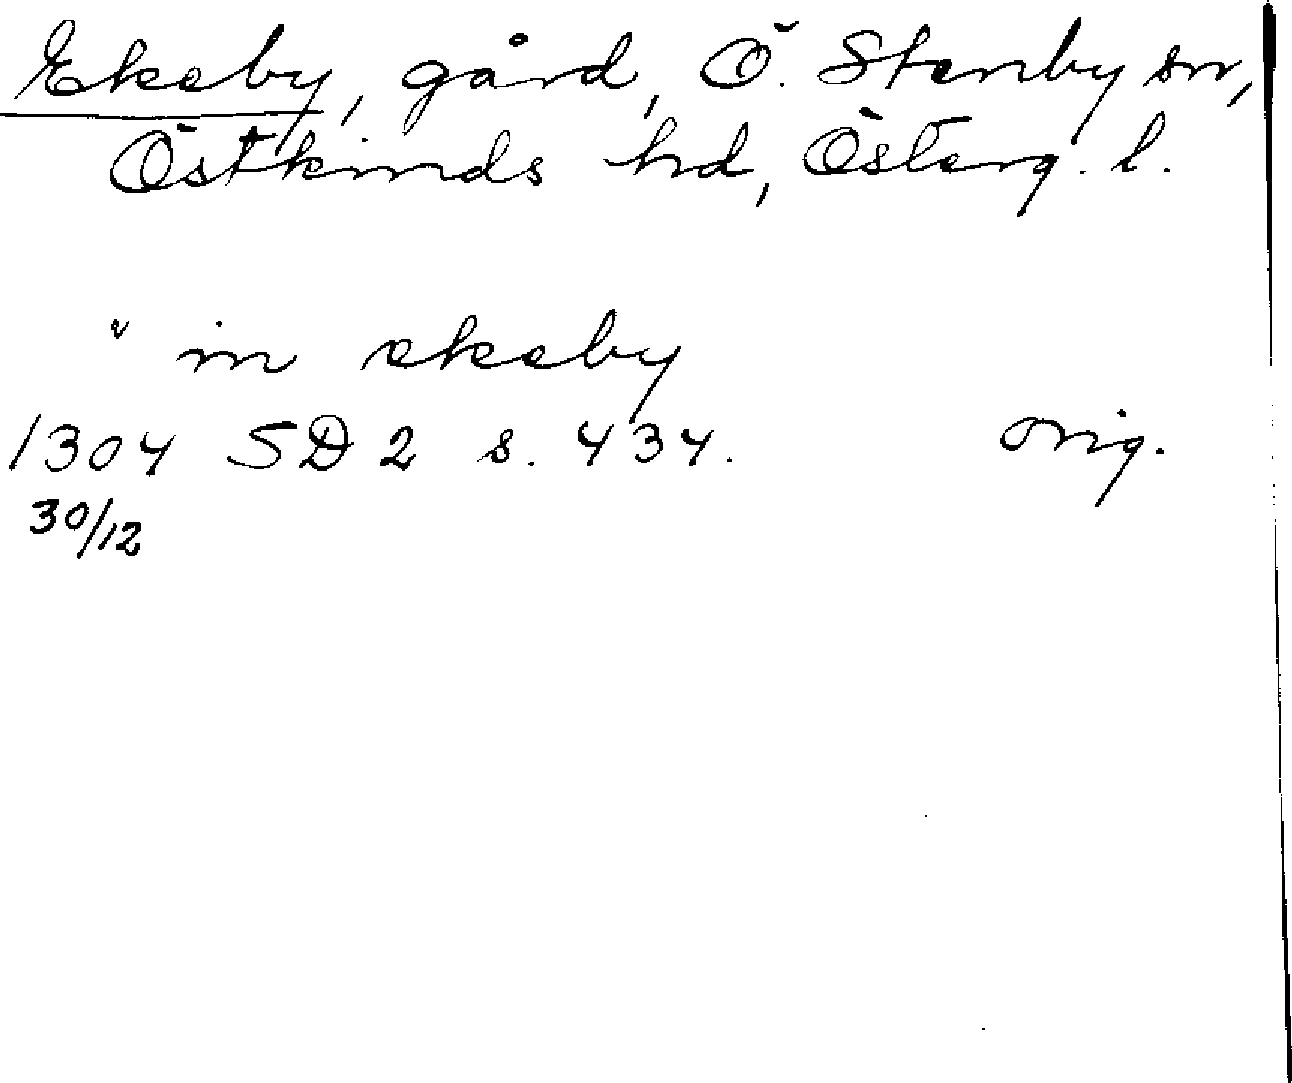 Ekeby, gård, Ö. Stenby sn,
Östkinds hd, Österg. l.
" in ekeby
1304 SD 2 s. 434. orig.
30/12